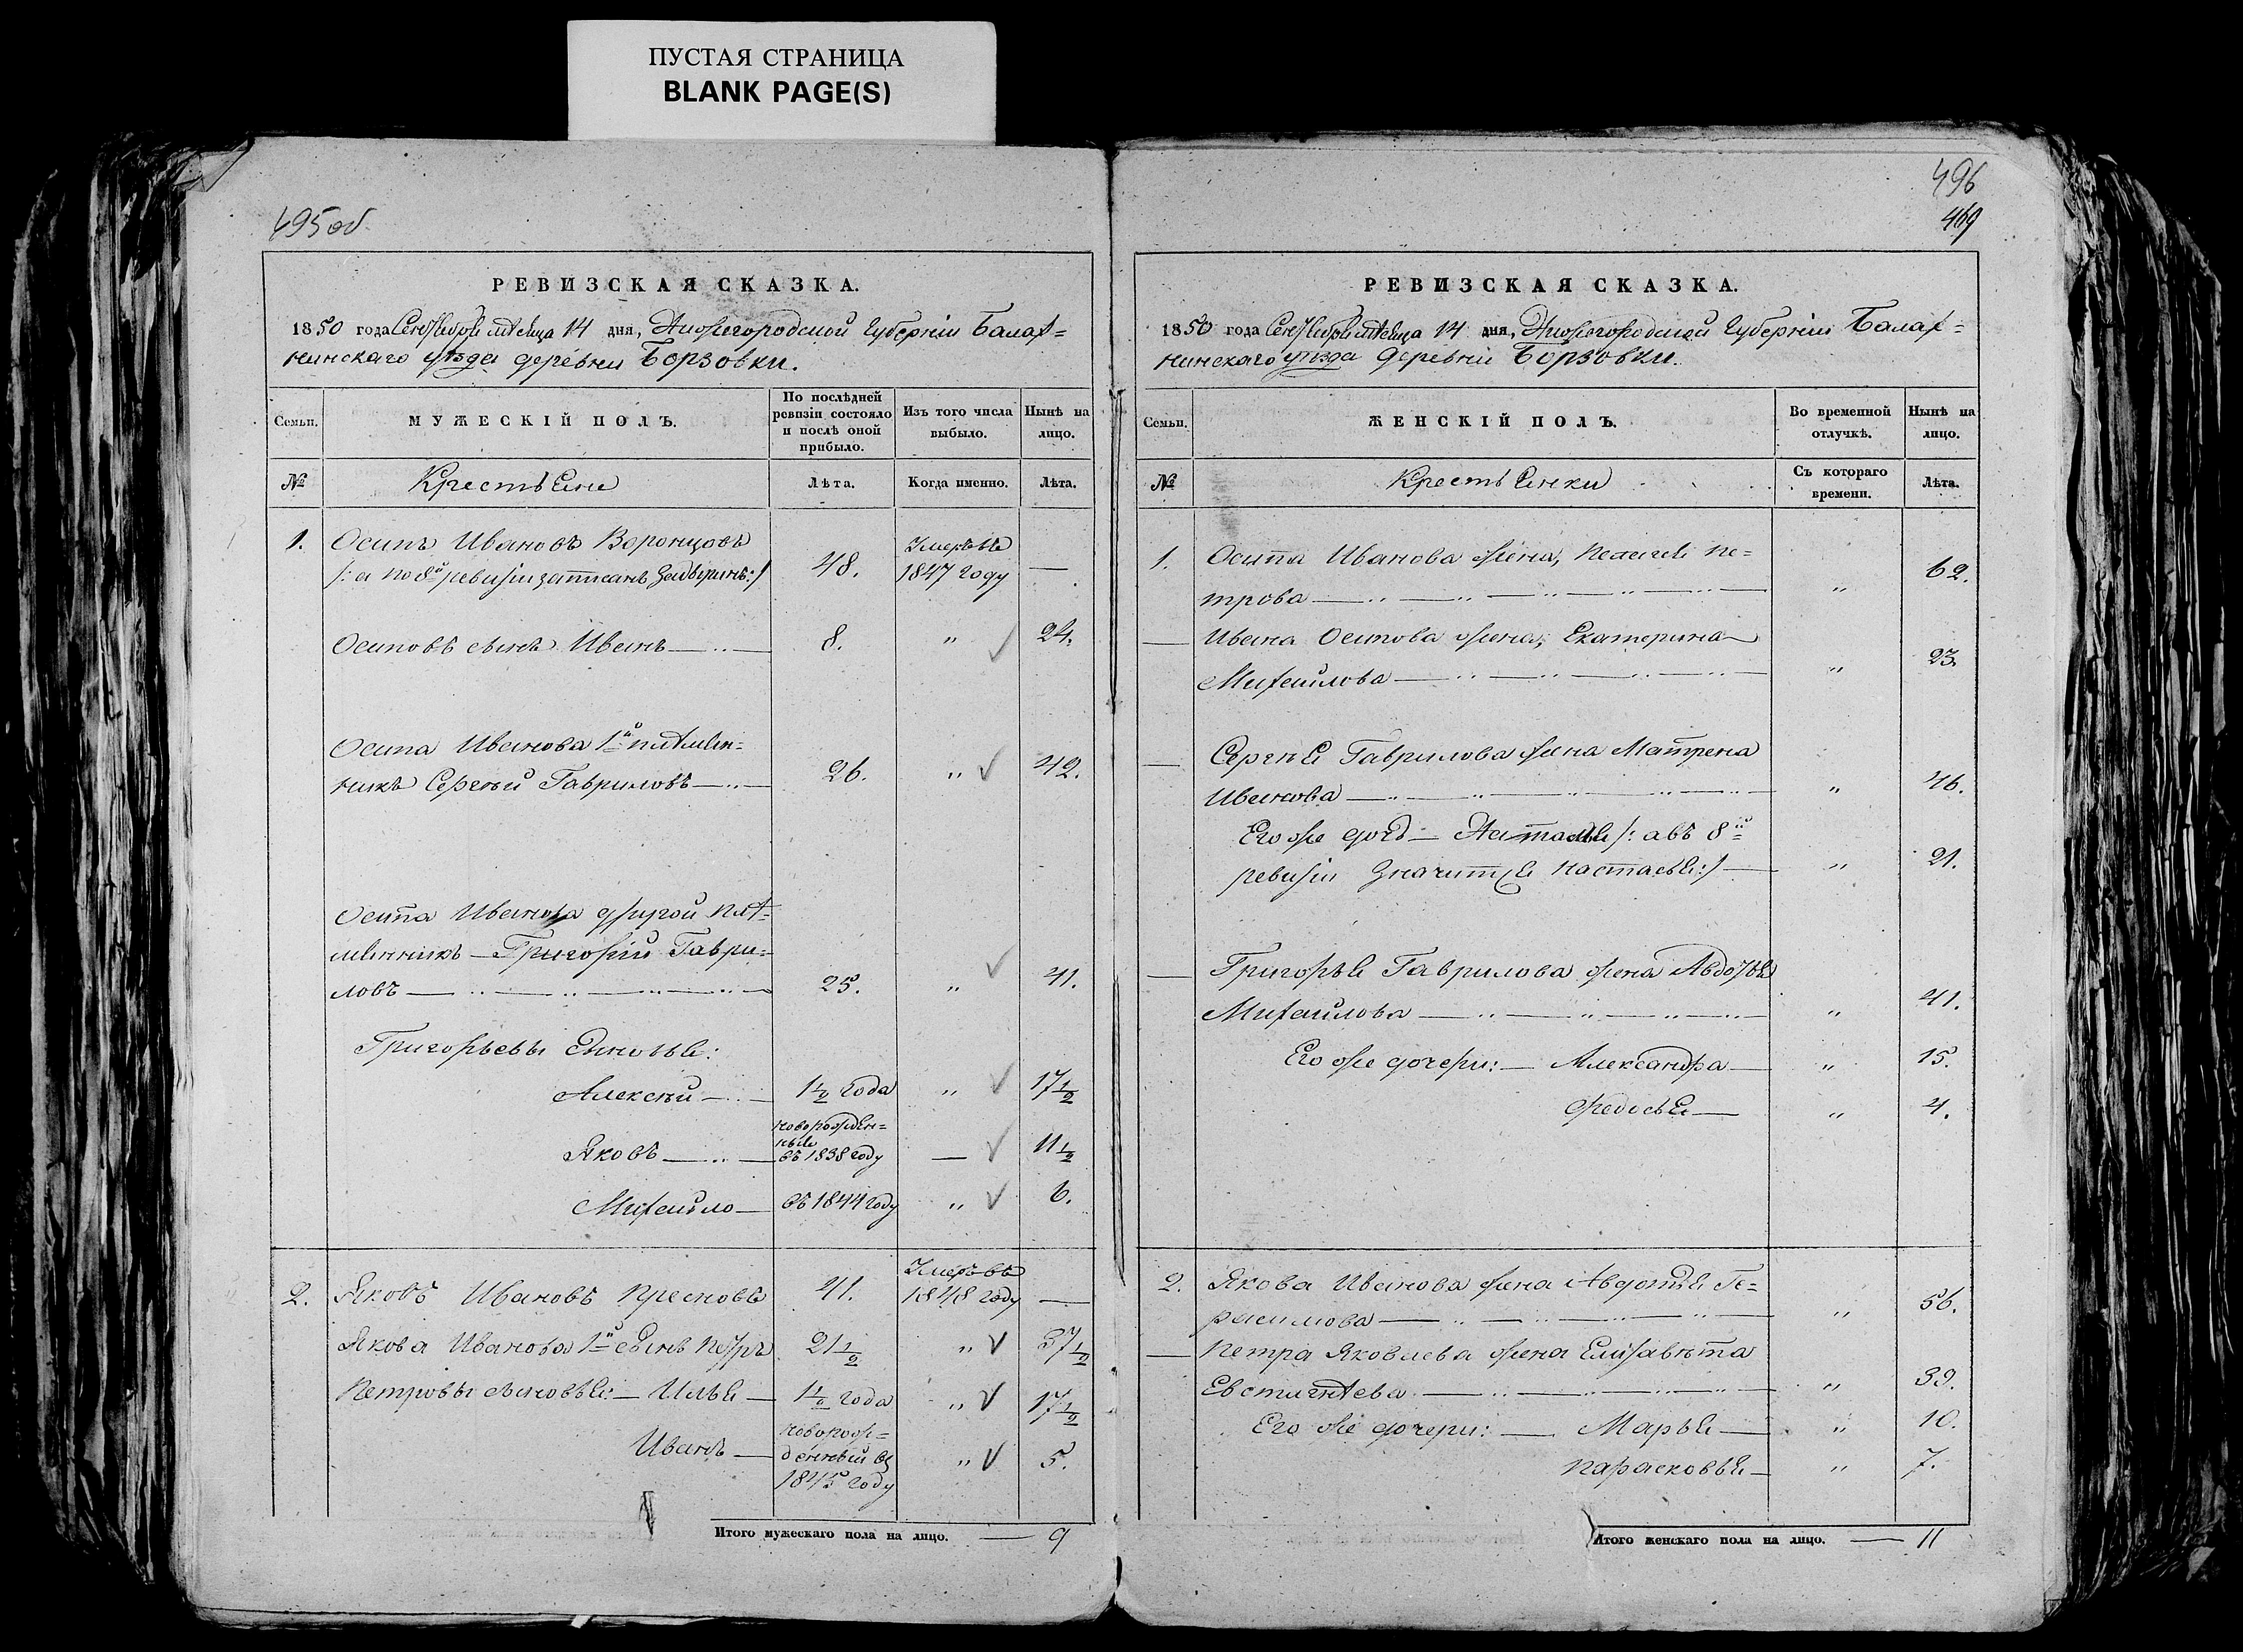 ПУСТАЯ СТРАНИЦА
BLANK PAGE(S)
495об
РЕВИЗСКАЯ СКАЗКА.
1850 года Сентября мѣсяца 14 дня, Нижегородской Губерніи Балах=
нинскаго уѣзда деревни Борзовки.
Семьи.
МУЖЕСКІЙ ПОЛЪ.
По послѣдней
ревизіи состояло
и послѣ оной
прибыло.
Изъ того числа
выбыло.
Нынѣ на
лицо.
№
Крестьяне
Лѣта.
Когда именно.
Лѣта.
1. Осипъ Ивановъ Воронцовъ
/: а по 8й ревизіи записанъ :/
48.
Умеръ въ
1847 году
—
Осиповъ сынъ Иванъ — 8. " 24.
Осипа Иванова 1й племян=
никъ Сергѣй Гавриловъ — 26. " 42.
Осипа Иванова другой пле=
мянникъ — Григорій Гаври=
ловъ — 25. " 41.
Григорьевы сыновья:
Алексѣй — 1½ года " 17½
Яковъ —
новорожден=
ные
въ 1838 году
— 11½
Михайло — въ 1844 году " 6.
2. Яковъ Ивановъ Прѣсновъ 41.
Умеръ въ
1848 году
—
Якова Иванова 1й сынъ Петръ 21½ " 37½
Петровы сыновья: — Илья — 1½ года " 17½
Иванъ —
новорож=
денный въ
1845 году
" 5.
Итого мужескаго пола на лицо. — 9
496
469
РЕВИЗСКАЯ СКАЗКА.
1850 года Сентября мѣсяца 14 дня, Нижегородской Губерніи Балах=
нинскаго уѣзда деревни Борзовки.
Семьи.
ЖЕНСКІЙ ПОЛЪ.
Во временной
отлучкѣ.
Нынѣ на
лицо.
№
Крестьянки
Съ котораго
времени.
Лѣта.
1. Осипа Иванова жена, Пелагея Пе=
трова — " 62.
— Ивана Осипова жена, Екатерина
Михайлова — " 23.
— Сергѣя Гаврилова жена Матрена
Иванова — " 46.
Его же дочь — Наталья /: а въ 8й
ревизіи значится Настасья :/ — " 21.
— Григорья Гаврилова жена Авдотья
Михайлова — " 41.
Его же дочери: — Александра — " 15.
Федосья — " 4.
2. Якова Иванова жена Авдотья Ге=
расимова — " 56.
— Петра Яковлева жена Елизавѣта
Евстигнѣева — " 39.
Его же дочери: — Марья — " 10.
Парасковья — " 7.
Итого женскаго пола на лицо. — 11